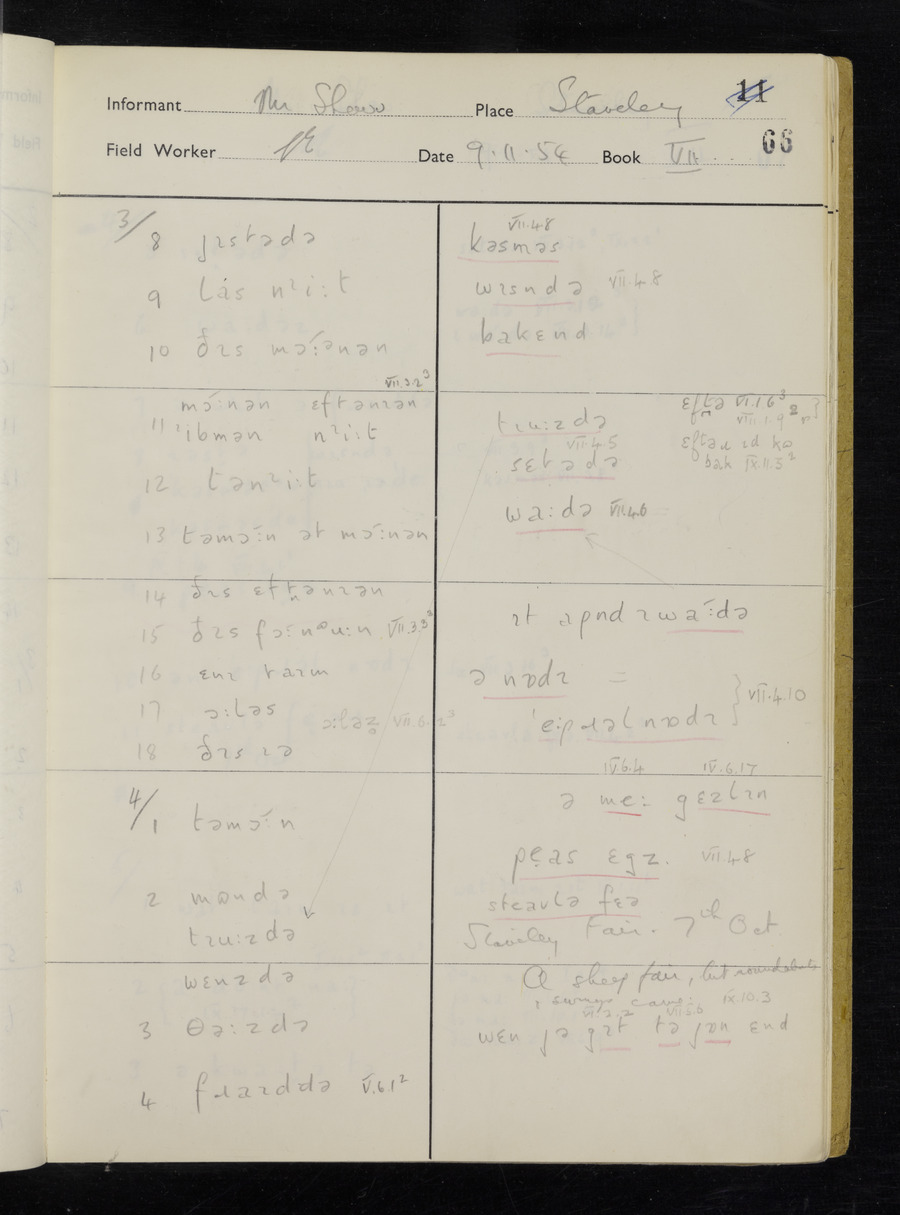 Informant Mr Shaw Place Staveley 11
Field Worker Date 9.11.54 Book VII 66
3/
8 jɪstədə
9 lás nɪi:t
10 ðɪs mɔ́:ənən
VII.3.2³
mɔ́:nən ɛftənɪən
11 'ibmən nɪi:t
12 tənɪi:t
13 təmɔ́:n ət mɔ́:nən
14 ðɪs ɛftənɪən
15 ðɪs fɔ:nəu:n VII.3.3³
16 ɛnɪ taɪm
17 ɔ:ləs
ɔ:ləz VII.6.2³
18 ðɪs ɪə
4/
1 təmɔ́:n
2 mʊndə
tɪu:zdə
wɛnzdə
3 θə:zdə
4 fɹaɪddə V.6.1²
VII.4.8
kəsməs
wɪsndə VII.4.8
bakɛnd
tɪu:zdə
VII.4.5
sɛtədə
wa:də VII.4.6
ɛftə VI.1.6³
VII.1.9²
ɛftəɹ ɪd kə
bak IX.11.3²
ɪt apnd ɪwa:də
ə nɒdɪ =
'e:pɹəl nɒdɪ } VII.4.10
IV.6.4 IV.6.17
ə me: gɛzlɪn
peas ɛgz. VII.4.8
steavlə fɛə
Staveley Fair. 7th Oct
A sheep fair, but roundabouts
& swings came: IX.10.3
VI.2.2 VII.5.8
wɛn jə gɪt tə jɒn ɛnd